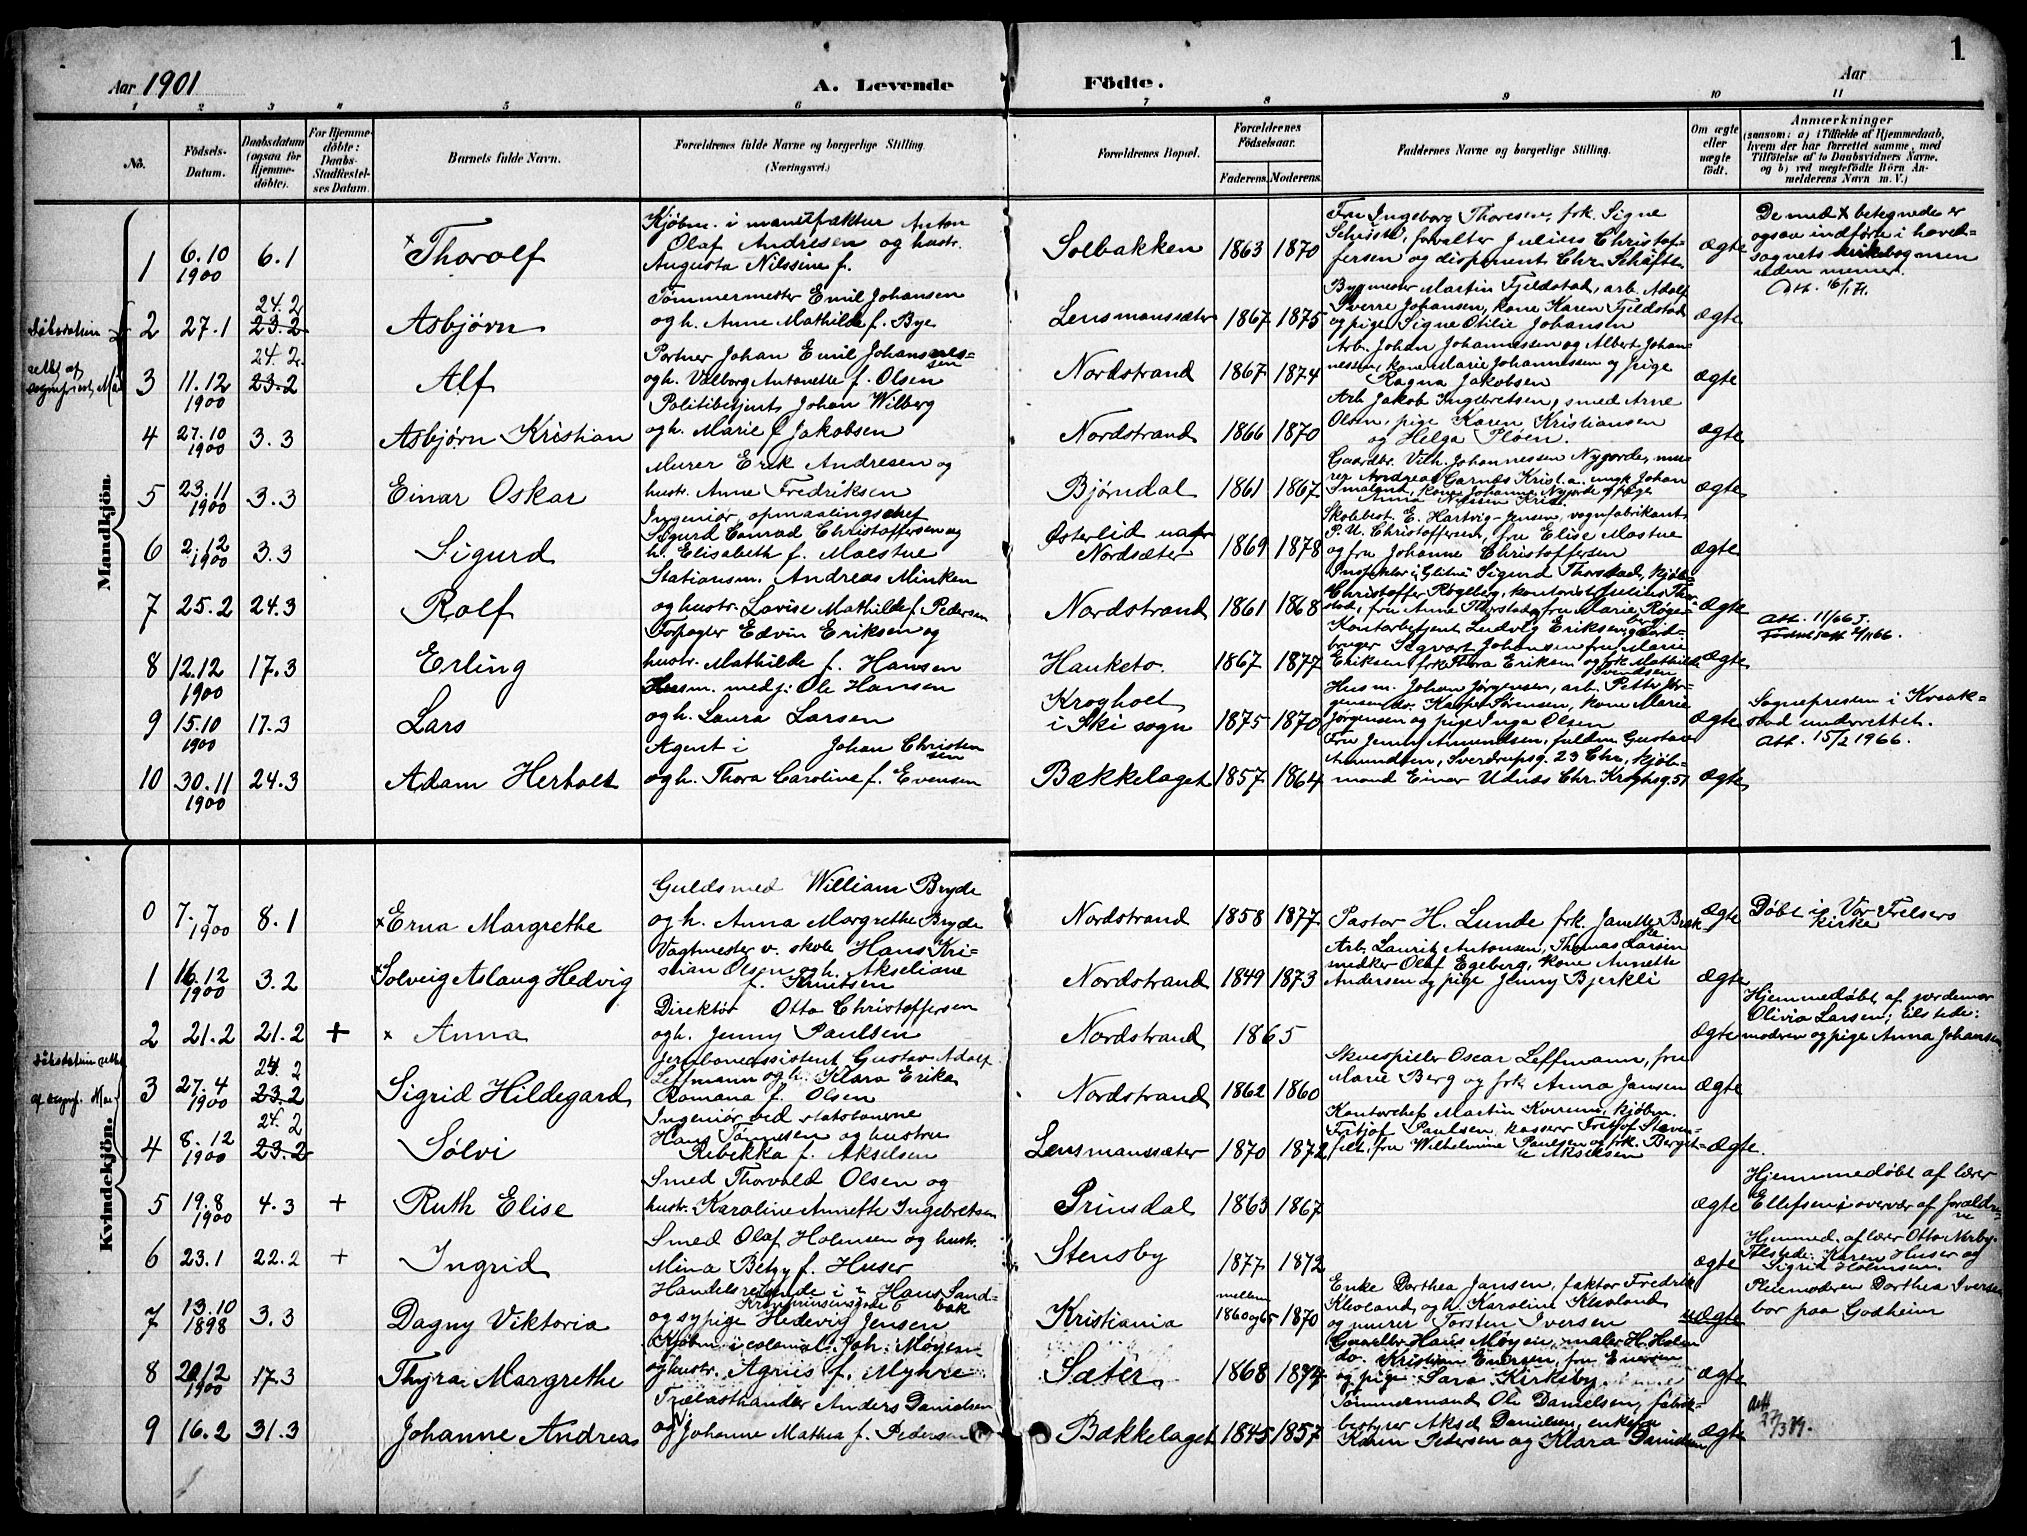 Aar 1901
A. Levende
Födte.
Aar
1
1 2 3 4 5 6 7 8 9 10 11
No.
Födsels-
Datum.
Daabsdatum
(ogsaa for
Hjemme-
döbte).
For Hjemme-
döbte:
Daabs-
Stadfæstel-
ses Datum.
Barnets fulde Navn.
Forældrenes fulde Navne og borgerlige Stilling.
(Næringsvei.)
Forældrenes Bopæl.
Forældrenes
Födselsaar.
Faderens. Moderens.
Faddernes Navne og borgerlige Stilling.
Om ægte
eller
uægte
født.
Anmærkninger
(saasom: a) i Tilfælde af Hjemmedaab,
hvem der har forrettet samme, med
Tilföielse af to Daabsvidners Navne,
og b) ved uægtefödte Börn An-
melderens Navn m. V.)
Mandkjön.
1 6.10 1900 6.1 × Thorolf
Kjøbm. i manufaktur Anton
Olaf Andresen og hustr.
Augusta Nilssine f.
Solbakken 1863 1870
Fru Ingeborg Thoresen, frk. Signe
forvalter Julius Christof-
fersen og disponent Chr.
ægte
De med × betegnede er
ogsaa indførte i hoved-
sognets kirkebog men
uden numer.
2 27.1 24.2 23.2 Asbjørn
Tømmermester Emil Johansen
og h. Anne Mathilde f. Bye
Lensmannssæter 1867 1875
Bygmester Martin Fjeldstad, arb. Adolf
Sverre Johansen, kone Karen Fjeldstad
og pige Signe Otilie Johansen
ægte
3 11.12 1900 24.2 23.2 Alf
Portner Johan Emil Johannes-
sen
og h. Valborg Antonette f. Olsen
Nordstrand 1867 1874
Arb. Johan Johannessen og Albert Johan-
nessen, kone Marie Johannessen og pige
Ragna Jakobsen
ægte
4 27.10 1900 3.3 Asbjørn Kristian
Politibetjent Johan Wilberg
og h. Marie f. Jakobsen
Nordstrand 1866 1870
Arb. Jakob Ingebretsen, smed Arne
Olsen, pige Karen Kristiansen
og Helga Ploen.
ægte
5 23.11 1900 3.3 Einar Oskar
Murer Erik Andresen og
hustr. Anne Fredriksen
Bjørndal 1861 1867
Gaardbr. Vilh. Johannessen Nygorde, mu-
rer Andreas Garnæs Krist.a. ungk. Johan
ægte
6 2.12 1900 3.3 Sigurd
Ingeniør, opmaalingschef
Sigurd Conrad Christoffersen og
h. Elisabeth f. Maestue
Østerlid
Nordsæter 1869 1878
Skolebest. E. Hartvig-Jensen, vognfabrikant
P. U. Christoffersen, fru Elise Mostue
og fru Johanne Christoffersen
ægte
7 25.2 24.3 Rolf
Stationsm. Andreas Minken
og hustr. Lovise Mathilde f. Pedersen
Nordstrand 1861 1868
Inspektør i Glitne Sigurd Thorstad, kjøb-
Christoffer Røgeberg, kontorist Julius Thor-
stad, fru Anne Thorstad, fru Marie Røge-
berg
ægte
Att. 11/66 J.
8 12.12 1900 17.3 Erling
Forpagter Edvin Eriksen og
hustr. Mathilde f. Hansen
Hauketo. 1867 1877
Kontorbetjent Ludvig Eriksen, gaard-
bruger Sigvart Johansen fru Marie
Eriksen, frk. Thora Eriksen og frk. Mathilde
Svendsen
ægte
9 15.10 1900 17.3 Lars
Husm. med j. Ole Hansen
og h. Laura Larsen
Krogholt
i Ski sogn 1875 1870
Husm. Johan Jørgensen, arb. Petter Jør-
gensen, do. Kasper Sørensen, kone Marie
Jørgensen og pige Inga Olsen
ægte
Sognepresten i Kraak-
stad underrettet.
Att. 15/2 1966.
10 30.11 1900 24.3 Adam Herbolt
Agent i Johan Christen
sen
og h. Thora Caroline f. Evensen
Bækkelaget 1857 1864
Fru Jenny Amundsen, fuldm. Gustav
Amundsen, Sverdrupsg. 23 Chr., kjøb-
mand Einar Udnæs Chr. Kroghsg. 51
ægte
Kvindekjön.
0 7.7 1900 8.1 × Erna Margrethe
Guldsmed William Bryde
og h. Anna Margrethe Bryde
Nordstrand 1858 1877
Pastor H. Lunde frk. Janette Brek-
ke
ægte
Døbt i Vor Frelsers
kirke
1 16.12 1900 3.2 × Solveig Aslaug Hedvig
Vagtmester v. skole Hans Kri-
stian Olsen og h. Akseliane
f. Knutsen
Nordstrand 1849 1873
Arb. Laurits Antonsen, Thomas Larsen
snedker Olaf Egeberg, kone Annette
Andersen og pige Jenny Bjerkli
ægte
2 21.2 21.2 + × Anna
Direktør Otto Christoffersen
og h. Jenny Paulsen
Nordstrand 1865
ægte
Hjemmedøbt af jordemor
Olivia Larsen; tilstede:
modren og pige Anna Johansen
3 27.4 1900 24.2 23.2 Sigrid Hildegard
Jernbaneassistent Gustav Adolf
Leffmann og h. Klara Erika
Romana f. Olsen
Nordstrand 1862 1860
Skuespiller Oscar Leffmann, fru
Marie Berg og frk. Anna Jansen
ægte
4 8.12 1900 24.2 23.2 Sølvi
Ingeniør ved statsbanerne
Hans Tønnesen og hustru
Rebekka f. Akselsen
Lensmannssæter 1870 1872
Kontorchef Martin Kverum, kjøbm.
Fritjof Paulsen, kasserer Fritjof Staven-
felt, fru Wilhelmine Paulsen og frk. Berget-
te Akselsen
ægte.
5 19.8 1900 4.3 + Ruth Elise
Smed Thorvald Olsen og
hustr. Karoline Annette Ingebretsen
Prinsdal 1863 1867
ægte
Hjemmedøbt af lærer
Ellefsen i overvær af forældre-
ne
6 23.1 22.2 + Ingrid
Smed Olaf Holmsen og hustr.
Mina Betzy f. Huser
Stensby 1877 1872
ægte
Hjemmed. af lærer Otto Nerby.
Tilstede: Karen Huser og
Sigrid Holmsen.
7 13.10 1898 3.3 Dagny Viktoria
Handelsreisende i Hans Sand-
bak
og sypige Hedevig Jensen
Kristiania
mellem
1860 og 65 1870
Enke Dorthea Jansen, faktor Fredrik
Kleveland og h. Karoline Kleveland
og murer Torsten Iversen
uægte
Pleiemoderen Dorthea Iversen
bor paa Godheim
8 20.12 1900 17.3 Thyra Margrethe
Kjøbm. i colonial. Joh. Møyen
og hustr. Agnes f. Myhre
Sæter 1868 1874
Gaardbr. Hans Møyen, maler H. Holm
do. Kristian Enersen, fru Enersen
og pige Sara Kirkeby.
ægte
9 16.2 31.3 Johanne Andrea
Trælasthandler Anders Danielsen
og Johanne Mathea f. Pedersen
Bækkelaget 1845 1857
Tømmermand Ole Danielsen, fabrik-
bestyrer Aksel Danielsen, enkefru
Karen Petersen og Klara Danielsen
ægte